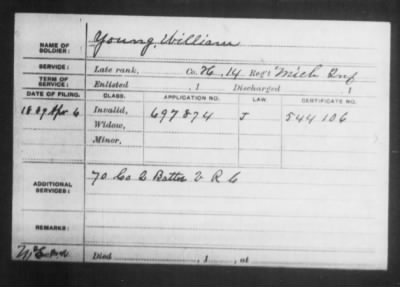 NAME OF SOLDIER: Young, William
SERVICE: Late rank, Co. H, 14 Reg't Mich Inf
TERM OF SERVICE: Enlisted , 1 Discharged , 1
DATE OF FILING. CLASS. APPLICATION NO. LAW. CERTIFICATE NO.
1889 Apr 6 Invalid, 697874 J 544106
Widow,
Minor,
ADDITIONAL SERVICES: 70 Co 2 Batt V R C
REMARKS:
Died , 1 , at